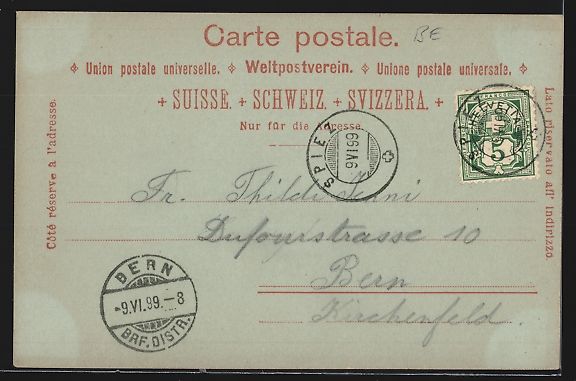 Carte postale. BE
Union postale universelle. Weltpostverein. Unione postale universale.
+ SUISSE. + SCHWEIZ. + SVIZZERA. +
Nur für die Adresse.
Côté réservé à l'adresse.
Lato riservato all' indirizzo.
HELVETIA
5
SPIEZ
9 VI 99
Fr. Thilde
Dufourstrasse 10
Bern
Kirchenfeld.
BERN
-9.VI.99.-8
BRF.DISTR.